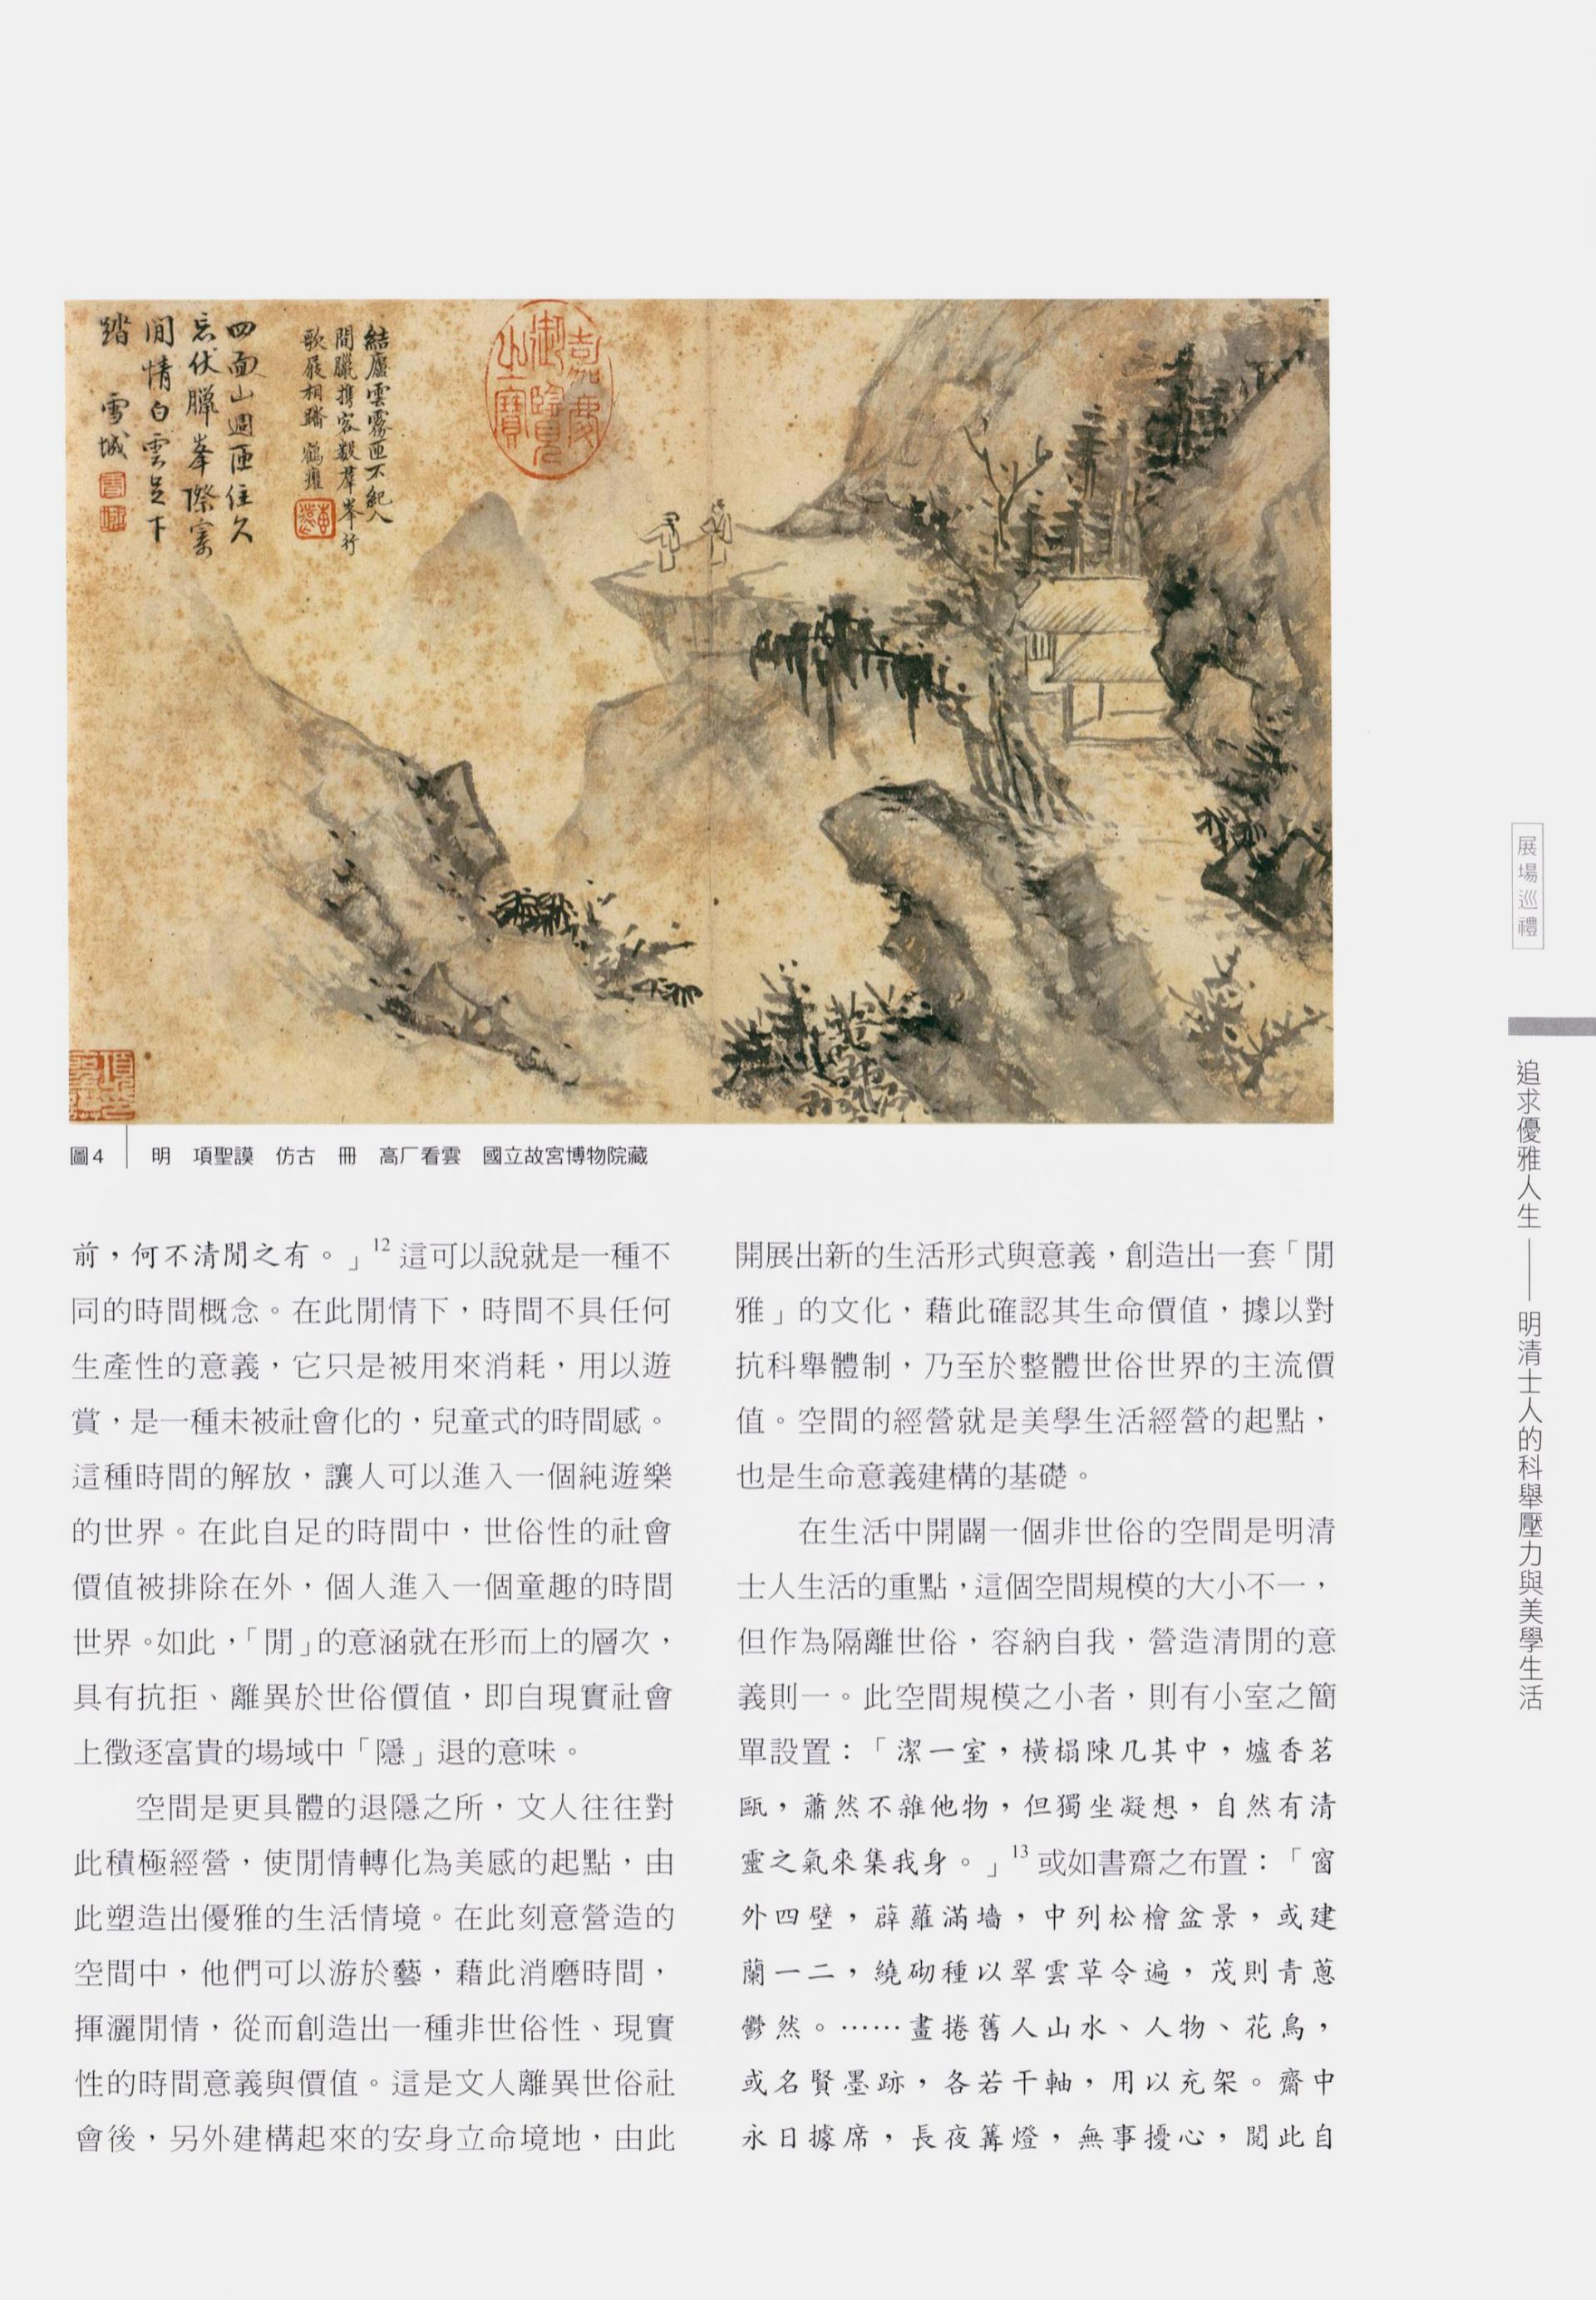 四面山週匝住久
忘伏臘峯際寄
閒情白雲足下
踏 雪城
結廬雲霧匝不紀人
間臘携客數羣峯行
歌屐相躋 鶴癯
嘉慶
御覽
之寶
圖4 明 項聖謨 仿古 冊 高厂看雲 國立故宮博物院藏
前，何不清閒之有。」12 這可以說就是一種不
同的時間概念。在此閒情下，時間不具任何
生產性的意義，它只是被用來消耗，用以遊
賞，是一種未被社會化的，兒童式的時間感。
這種時間的解放，讓人可以進入一個純遊樂
的世界。在此自足的時間中，世俗性的社會
價值被排除在外，個人進入一個童趣的時間
世界。如此，「閒」的意涵就在形而上的層次，
具有抗拒、離異於世俗價值，即自現實社會
上徵逐富貴的場域中「隱」退的意味。
空間是更具體的退隱之所，文人往往對
此積極經營，使閒情轉化為美感的起點，由
此塑造出優雅的生活情境。在此刻意營造的
空間中，他們可以游於藝，藉此消磨時間，
揮灑閒情，從而創造出一種非世俗性、現實
性的時間意義與價值。這是文人離異世俗社
會後，另外建構起來的安身立命境地，由此
開展出新的生活形式與意義，創造出一套「閒
雅」的文化，藉此確認其生命價值，據以對
抗科舉體制，乃至於整體世俗世界的主流價
值。空間的經營就是美學生活經營的起點，
也是生命意義建構的基礎。
在生活中開闢一個非世俗的空間是明清
士人生活的重點，這個空間規模的大小不一，
但作為隔離世俗，容納自我，營造清閒的意
義則一。此空間規模之小者，則有小室之簡
單設置：「潔一室，橫榻陳几其中，爐香茗
甌，蕭然不雜他物，但獨坐凝想，自然有清
靈之氣來集我身。」13 或如書齋之布置：「窗
外四壁，薜蘿滿墻，中列松檜盆景，或建
蘭一二，繞砌種以翠雲草令遍，茂則青蔥
鬱然。……畫捲舊人山水、人物、花鳥，
或名賢墨跡，各若干軸，用以充架。齋中
永日據席，長夜篝燈，無事擾心，閱此自
展場巡禮
追求優雅人生——明清士人的科舉壓力與美學生活